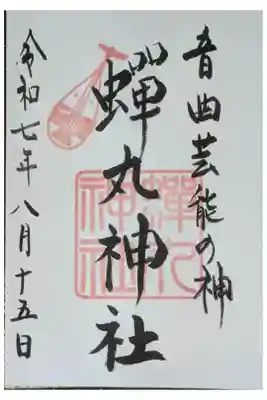 音曲芸能の神
蟬丸神社
令和七年八月十五日
蟬丸
神社